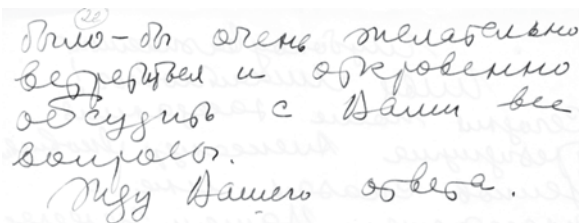 (2)
было-бы очень желательно
встретиться и откровенно
обсудить с Вами все
вопросы.
Жду Вашего ответа.